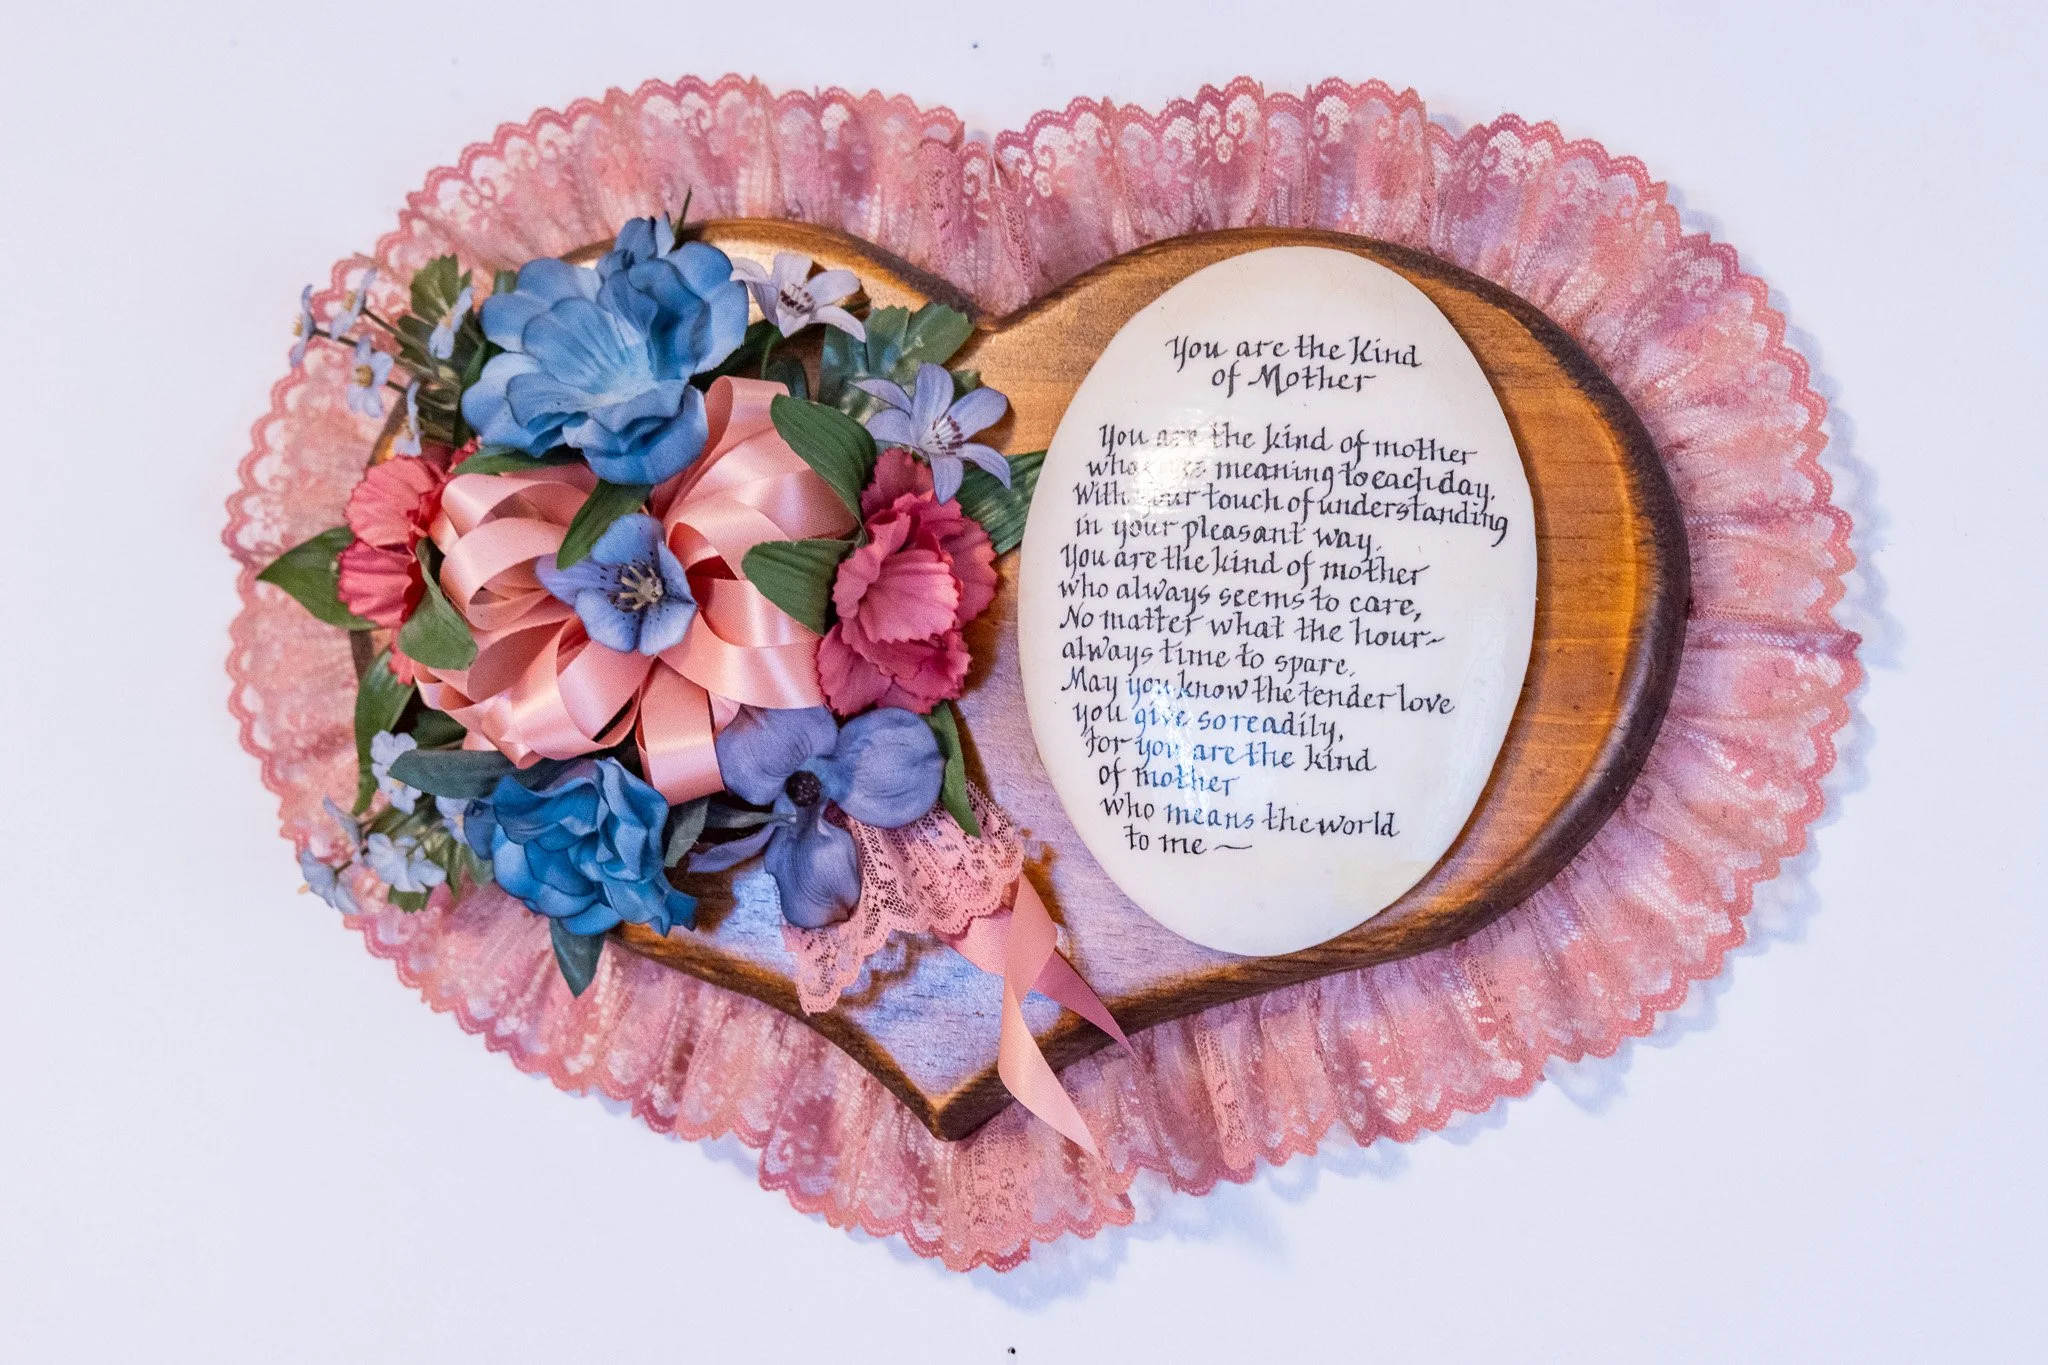 You are the Kind
of Mother
You are the kind of mother
who gives meaning to each day,
With your touch of understanding
in your pleasant way.
You are the kind of mother
who always seems to care,
No matter what the hour~
always time to spare.
May you know the tender love
you give so readily,
for you are the kind
of mother
who means the world
to me ~